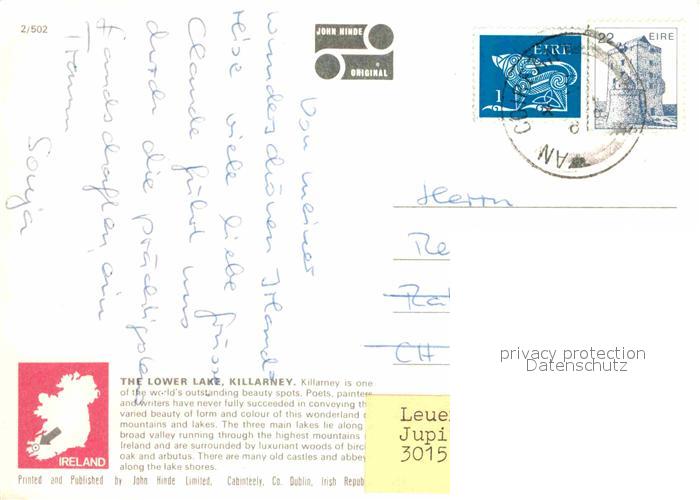 2/502
JOHN HINDE
ORIGINAL
EIRE
1
22
EIRE
AN
Von meiner
wunderschönen Irland-
reise viele liebe Grüsse
Claude führt uns
durch die prächtigsten
Landschaften, ein
Traum
Sonja
Herrn
Re
CH
privacy protection
Datenschutz
Leue
Jupi
3015
THE LOWER LAKE, KILLARNEY. Killarney is one
of the world's outstanding beauty spots. Poets, painters
and writers have never fully succeeded in conveying th
varied beauty of form and colour of this wonderland
mountains and lakes. The three main lakes lie along
broad valley running through the highest mountains
Ireland and are surrounded by luxuriant woods of birc
oak and arbutus. There are many old castles and abbey
along the lake shores.
IRELAND
Printed and Published by John Hinde Limited, Cabinteely, Co. Dublin, Irish Repub